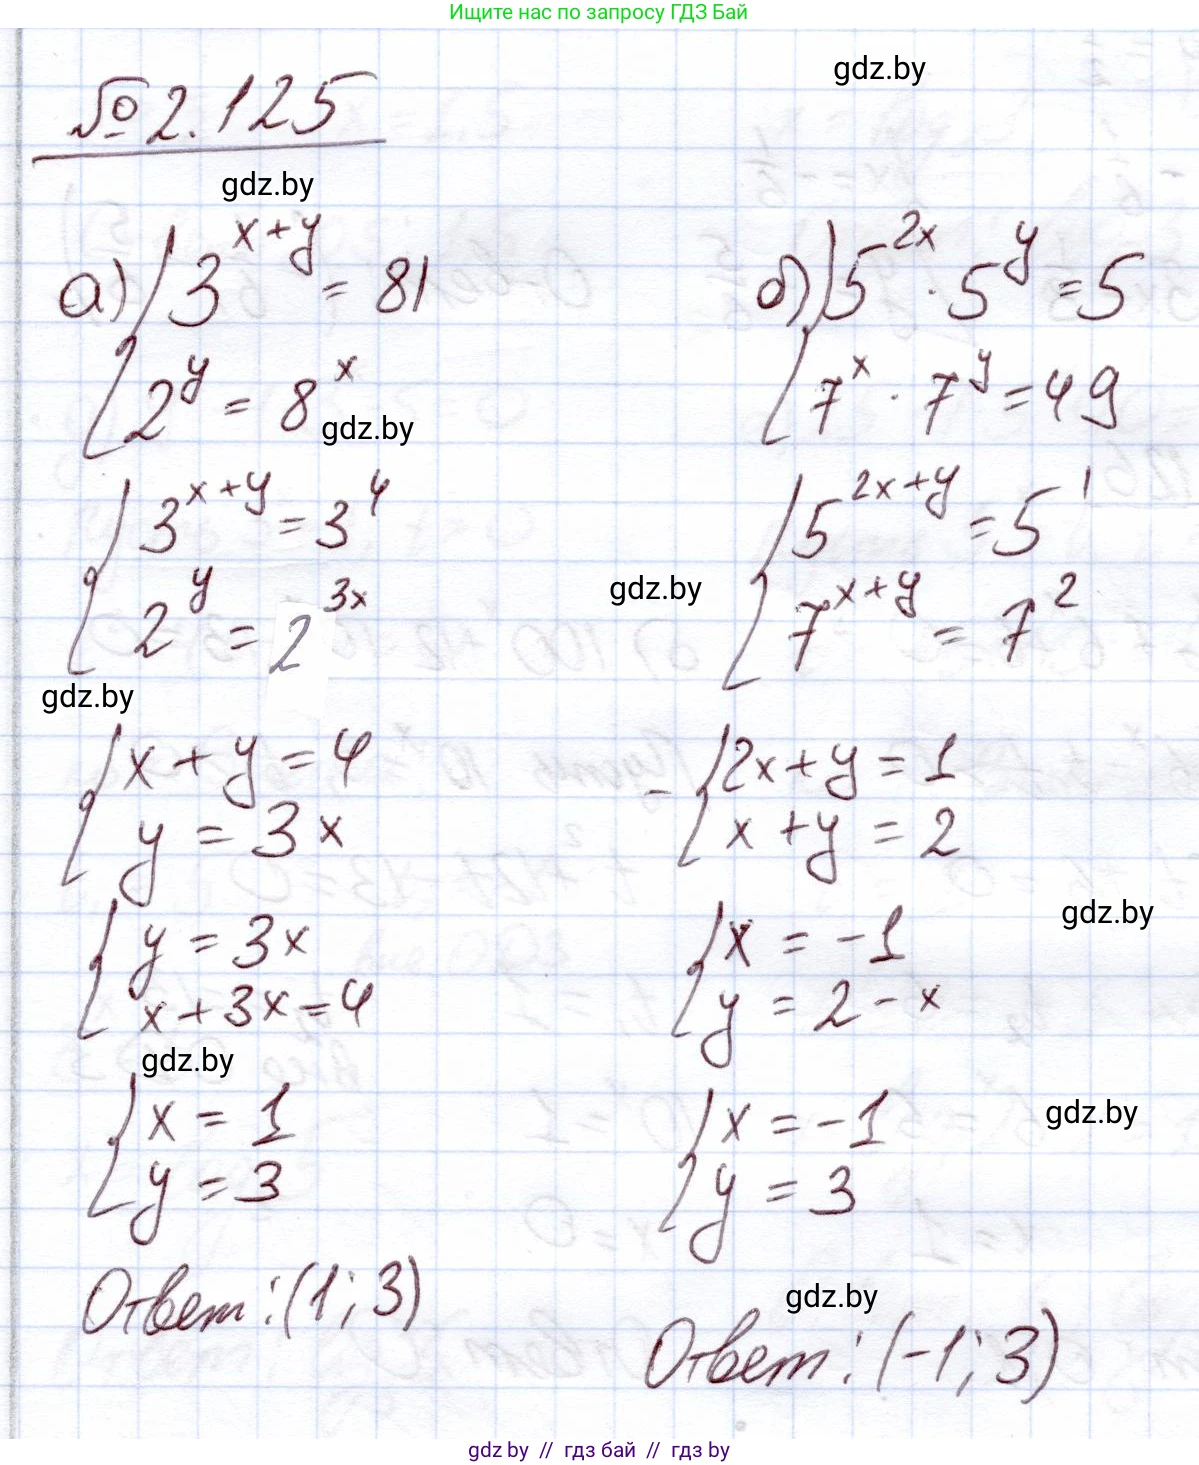 Ищите нас по запросу ГДЗ Бай
gdz.by
№ 2.125
gdz.by
а) { 3^(x+y) = 81
2^y = 8^x
gdz.by
{ 3^(x+y) = 3^4
2^y = 2^(3x)
gdz.by
{ x + y = 4
y = 3x
{ y = 3x
x + 3x = 4
gdz.by
{ x = 1
y = 3
Ответ: (1; 3)
б) { 5^(2x) · 5^y = 5
7^x · 7^y = 49
{ 5^(2x+y) = 5^1
gdz.by
7^(x+y) = 7^2
- { 2x + y = 1
x + y = 2
gdz.by
{ x = -1
y = 2 - x
gdz.by
{ x = -1
y = 3
gdz.by
Ответ: (-1; 3)
gdz by // гдз бай // гдз by